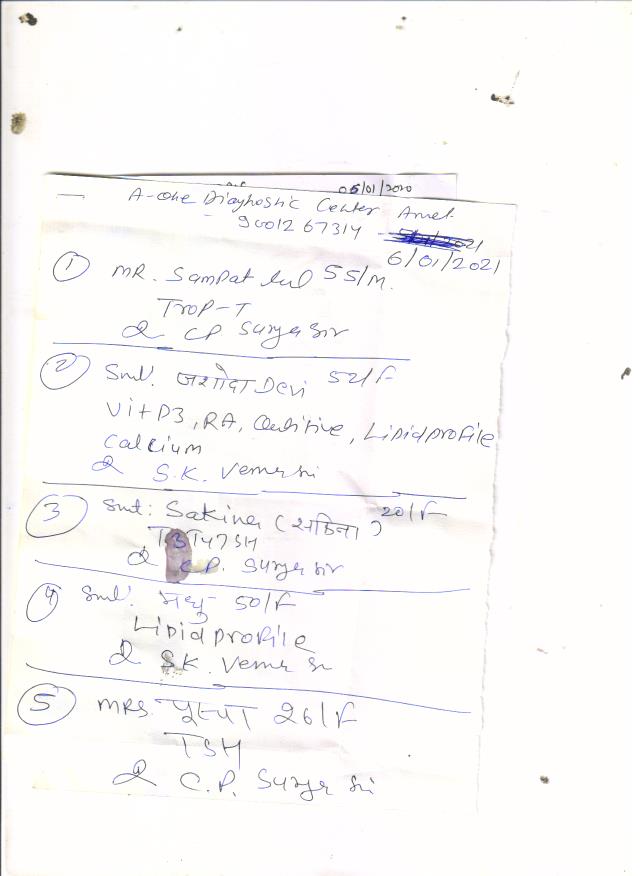 05/01/2020
A-one Diaghostic Center Amet
9001267314
6/01/2021
① MR. Sampat Lal 55/M.
TROP-T
CP Surya Sir
② Smt. जशोदा Devi 52/F
Vit D3, RA, Lipid profile
Calcium
S.K. Verma Sir
③ Smt: Sakina (सकिना) 20/F
T3T4TSH
C.P. Surya Sir
④ Smt. मधु 50/F
Lipid profile
S.K. Verma Sir
⑤ MRS. 26/F
TSH
C.P. Surya Sir